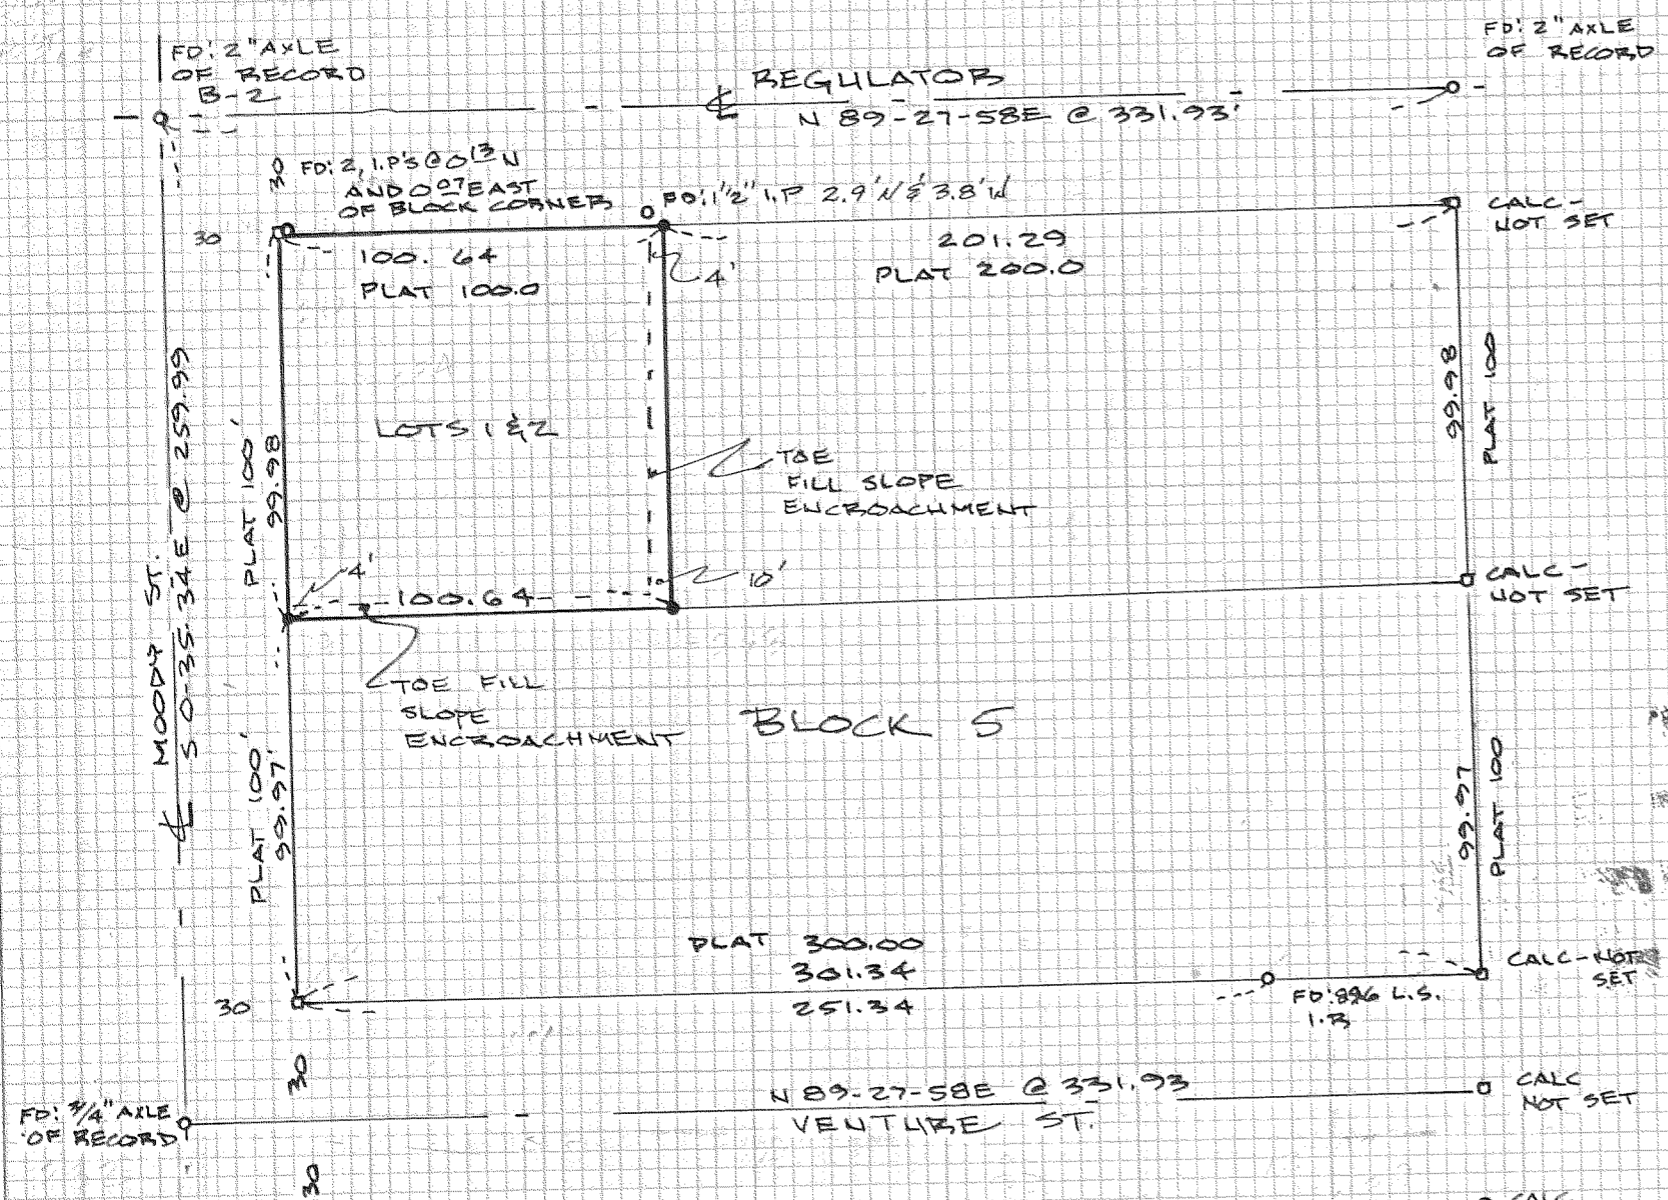 FD: 2" AXLE
OF RECORD
B-2
FD: 2" AXLE
OF RECORD
℄ REGULATOR
N 89-27-58E @ 331.93'
30
FD: 2, I.P'S @ 0.13 N
AND 0.07 EAST
OF BLOCK CORNER
FD: 1½" I.P 2.9' N & 3.8' W
CALC-
NOT SET
30
100.64
PLAT 100.0
4'
201.29
PLAT 200.0
℄ MOODY ST.
S 0-35-34E @ 259.99
PLAT 100'
99.98
LOTS 1 & 2
99.98
PLAT 100
TOE
FILL SLOPE
ENCROACHMENT
4'
100.64
10'
CALC-
NOT SET
TOE FILL
SLOPE
ENCROACHMENT
BLOCK 5
PLAT 100'
99.97'
99.97
PLAT 100
PLAT 300.00
301.34
251.34
FD: 896 L.S.
CALC-NOT
SET
30
30
N 89-27-58E @ 331.93
VENTURE ST.
CALC
NOT SET
FD: 3/4" AXLE
OF RECORD
30
CALC